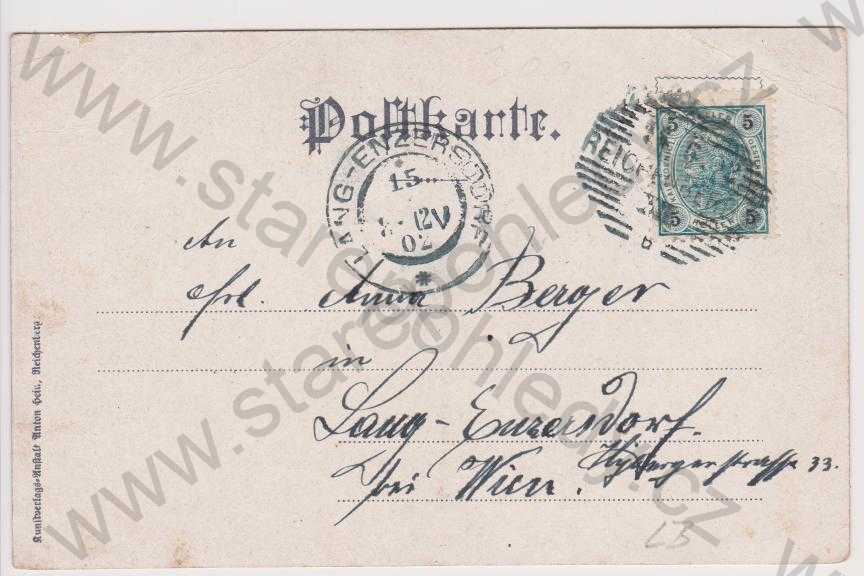 Postkarte.
LANG-ENZERSDORF
15
12V
02
5 5
REICHEN
5 5
An
Frl. Anna Berger
in
Lang-Enzersdorf.
bei Wien.
33.
Kunstverlags-Anstalt Anton Heil, Reichenberg.
LB
www.starepohledy.cz